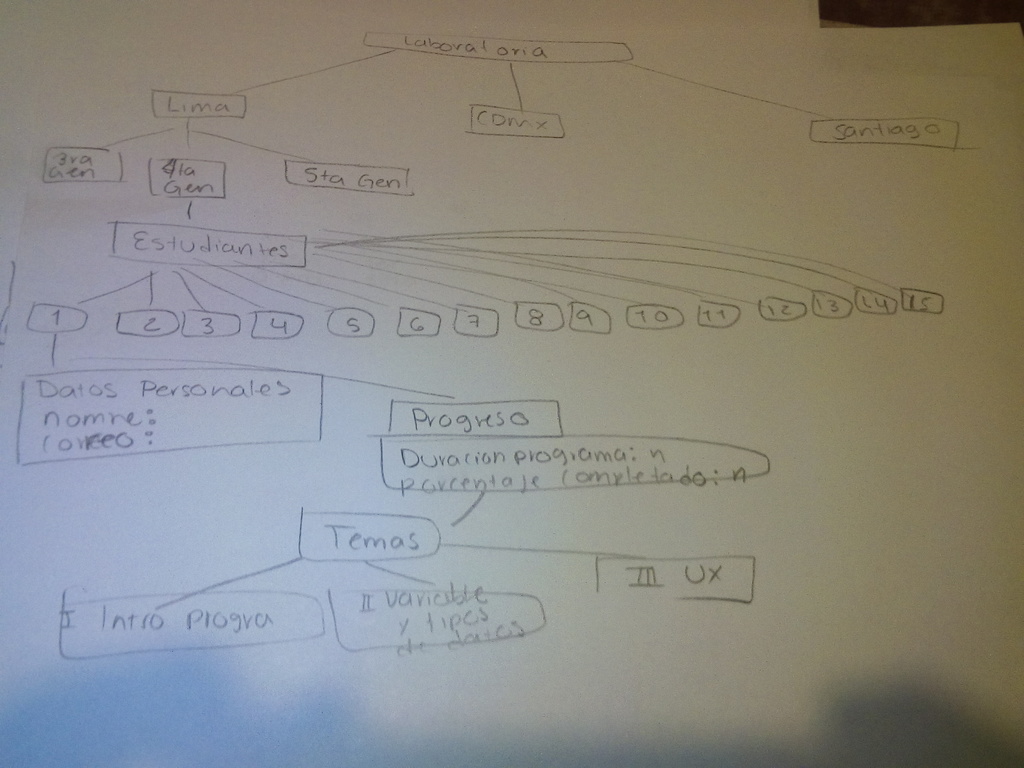 Laboratoria
Lima
CDmx
Santiago
3ra
Gen
4ta
Gen
5ta Gen
Estudiantes
1
2
3
4
5
6
7
8
9
10
11
12
13
14
15
Datos Personales
nomre:
correo:
Progreso
Duracion programa: n
porcentaje completado: n
Temas
I Intro Progra
II variable
y tipos
de datos
III UX